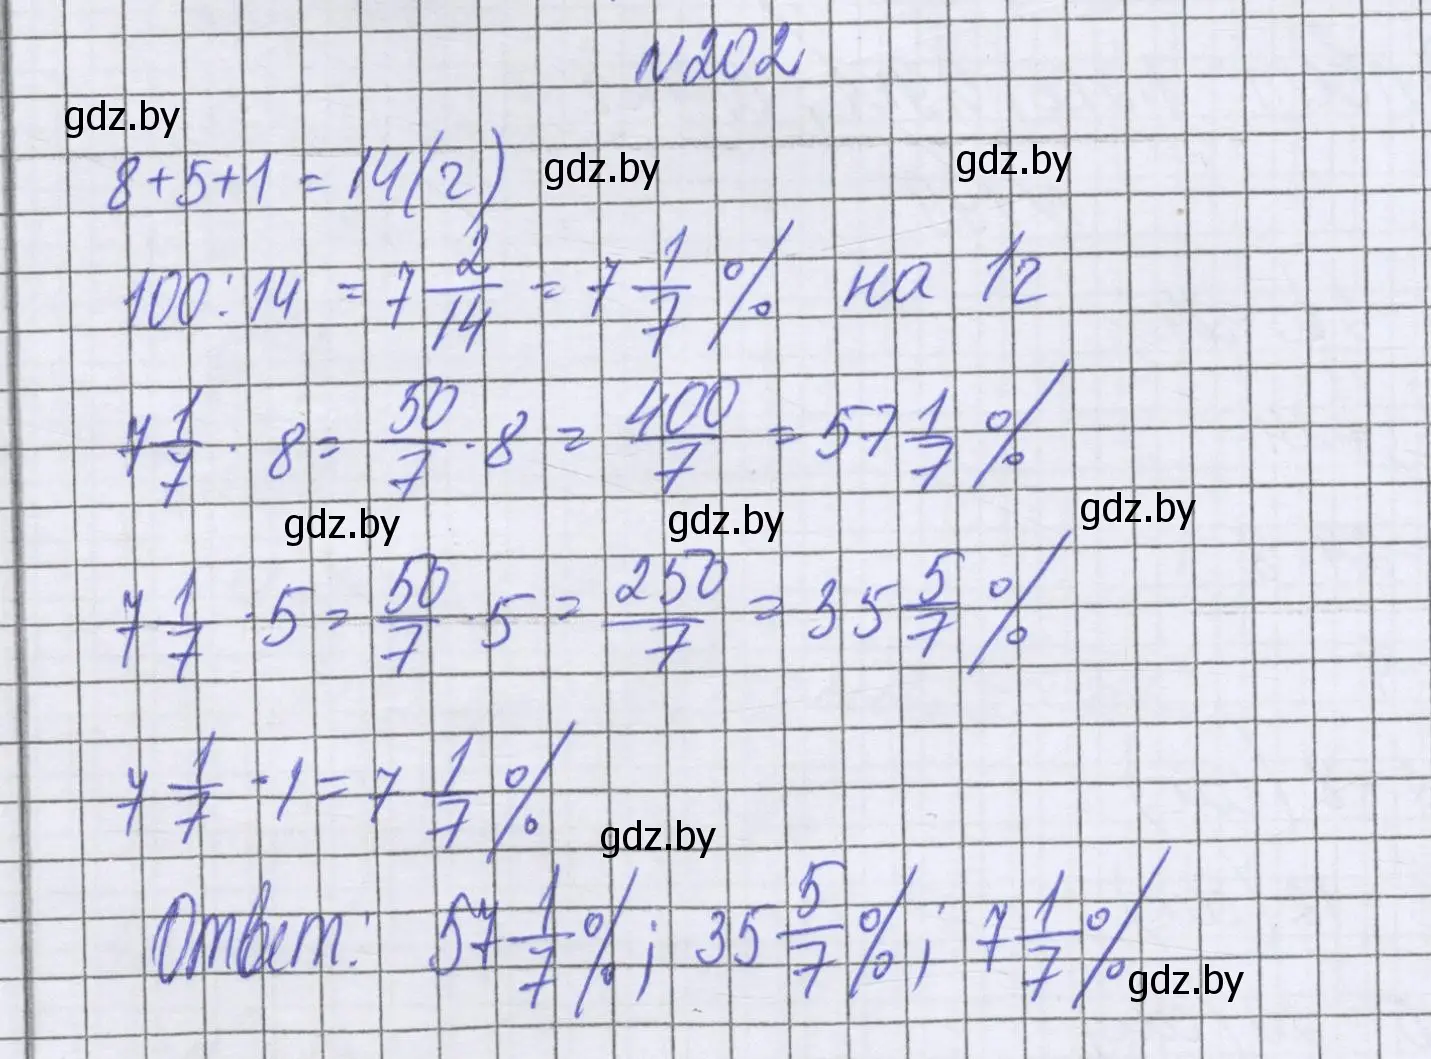 N202
gdz.by
8+5+1 = 14(г) gdz.by gdz.by
100:14 = 7 2/14 = 7 1/7 % на 1г
7 1/7 · 8 = 50/7 · 8 = 400/7 = 57 1/7 %
gdz.by gdz.by gdz.by
7 1/7 · 5 = 50/7 · 5 = 250/7 = 35 5/7 %
7 1/7 · 1 = 7 1/7 %
gdz.by
Ответ: 57 1/7 %; 35 5/7 %; 7 1/7 %
gdz.by